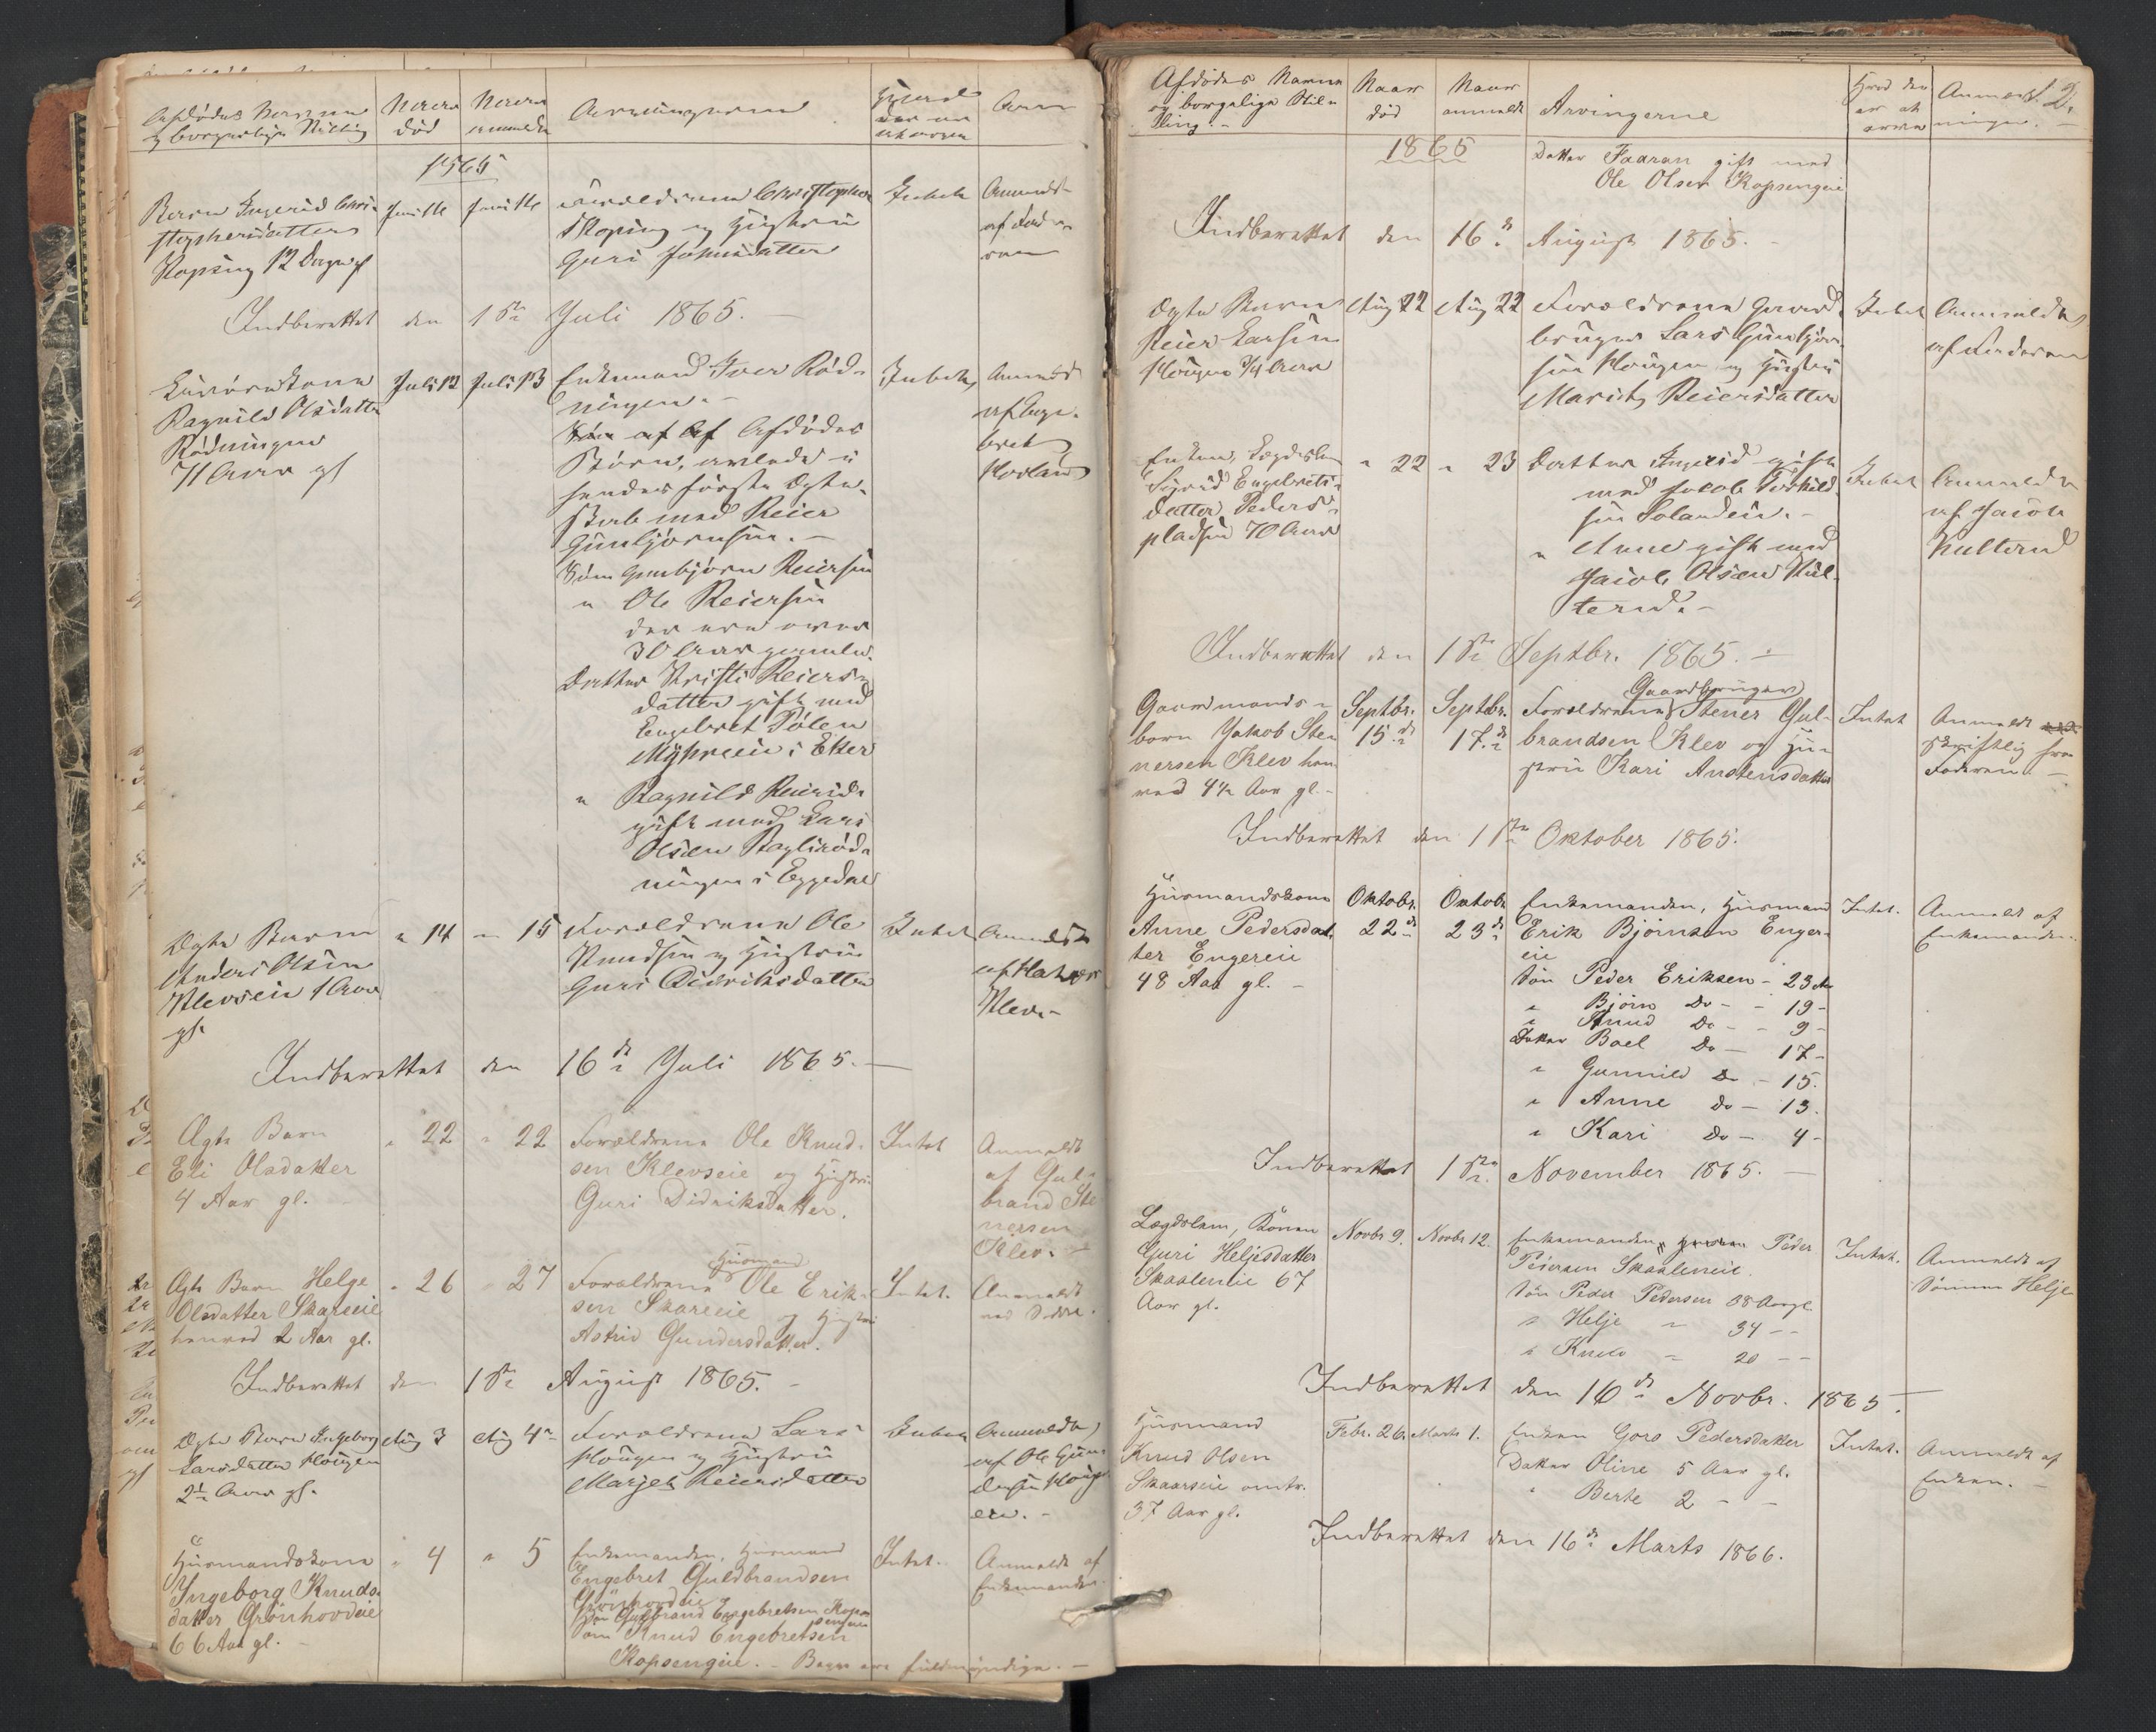 Afdødes Navn og borgerlige Stilling
Naar død
Naar anmeldt
Arvingerne
1865
Barn Ingerid Chri-
stophersdatter
Kopsing 12 Dage gl
Forældrene Christopher
Kopsing og Hustru
Guri Johnsdatter
Intet
Anmeldt
af Faderen
Indberettet den 1ste Juli 1865. —
Ragnild Olsdatter
Rödningen
71 Aar gl
Juli 12
Juli 13
Enkemand Iver Röd-
ningen. -
Afdødes
Börn, avlede i
hendes første Ægte-
skab med Reier
Gunbjörnsen. —
Sön Gunbjörn Reiersen
" Ole Reiersen
der ere over
30 Aar gamle.
Datter Kristi Reiers-
datter gift med
Engebret Pølen
Myhreeie i Eker
" Ragnild Reiersd.
gift med Lars
Olsen Bagliröd-
ningen i Eggedal
Intet
Anmeldt
af Enge-
bret
Hovland
Ægte Barn
Anders Olsen
Klevseie 1 Aar
gl.
" 14
" 15
Forældrene Ole
Knudsen og Hustru
Guri Didriksdatter
Intet
Anmeldt
af
Klev. -
Indberettet den 16de Juli 1865. —
Ægte Barn
Eli Olsdatter
4 Aar gl.
" 22
" 22
Forældrene Ole Knud-
sen Klevseie og Hustru
Guri Didriksdatter.
Intet
Anmeldt
af Gul-
brand Ste
nersen
Klev. -
Ægte Barn Helge
Olsdatter Skareeie
henved 2 Aar gl.
" 26
" 27
Husmand
Forældrene Ole Erik-
sen Skareeie og Hustru
Astrid Gundersdatter.
Intet.
Anmeldt
Indberettet den 1ste August 1865. -
Ægte Barn Ingeborg
Larsdatter Hougen
2½ Aar gl.
Aug 3
Aug 4
Forældrene Lars
Hougen og Hustru
Marjet Reiersdatter
Intet
Anmeldt
af Ole Gun-
dersen Houg
en. -
Husmandskone
Ingeborg Knuds-
datter Grönhovdeie
66 Aar gl. -
" 4
" 5
Enkemanden, Husmand
Engebret Guldbrandsen
Grönhovdeie
Sön Gulbrand Engebretsen Kops
engeie
Sön Knud Engebretsen
Kopsengeie. - Begge ere fuldmyndige. —
Intet.
Anmeldt af
Enkemanden.
Afdødes Navn
og borgelige Stil-
ling. -
Naar
død
Naar
anmeldt
Arvingerne
Hvad der
er at
arve
Anmærk-
ninger.
2.
1865
Datter Faaran gift med
Ole Olsen Kopsengeie
Indberettet den 16de August 1865. -
Ægte Barn
Reier Larsen
Hougen ¾ Aar
Aug 22
Aug 22
Forældrene Gaard-
bruger Lars Gunbjörn
sen Hougen og Hustru
Marit Reiersdatter
Intet
Anmeldt
af Faderen
Enken, Lægdslem
Sigrid Engebrets-
datter Peders-
pladsen 70 Aar
" 22
" 23
Datter Ingerid gift
med Jacob Torkild-
sen Solandeie. -
" Anne gift med
Jacob Olsen Kul-
terud. -
Intet
Anmeldt
af Jacob
Kulterud
Indberettet den 1ste Septbr. 1865. -
Gaardmands-
barn Jakob Ste
nersen Klev hen
ved 4½ Aar gl. -
Septbr.
15de
Septbr.
17de
Gaardbruger
Forældrene Stener Gul-
brandsen Klev og Hu-
stru Kari Austensdatter
Intet
Anmeldt
skriftlig fra
Faderen. -
Indberettet den 1ste Oktober 1865.
Husmandskone
Anne Pedersdat-
ter Engereie
48 Aar gl. -
Oktobr.
22de
Oktobr
23de
Enkemanden, Husmand
Erik Bjørnsen Enger-
eie
Sön Peder Eriksen - 23 Aar
" Bjørn Do - - 19 -
" Knud Do - - 9 -
Datter Boel Do - 17 -
" Gunnild Do - 15.
" Anne Do - 13.
" Kari Do - 4 -
Intet.
Anmeldt af
Enkemanden.
Indberettet 1ste November 1865. —
Lægdslem, Konen
Guri Heljesdatter
Skaaleneie 67
Aar gl.
Novbr 9.
Novbr 12.
Enkemanden Peder
Pedersen Skaaleneie.
Sön Peder Pedersen 38 Aar gl
" Helje " 34 - -
" Knud " 20 - -
Intet.
Anmeldt af
Sönnen Helje
Indberettet den 16de Novbr. 1865. —
Husmand
Knud Olsen
Skaarseie omtr.
37 Aar gl.
Febr. 26.
Marts 1.
Enken Goro Pedersdatter
Datter Oline 5 Aar gl.
" Berte 2 - -
Intet.
Anmeldt af
Enken. -
Indberettet den 16de Marts 1866.